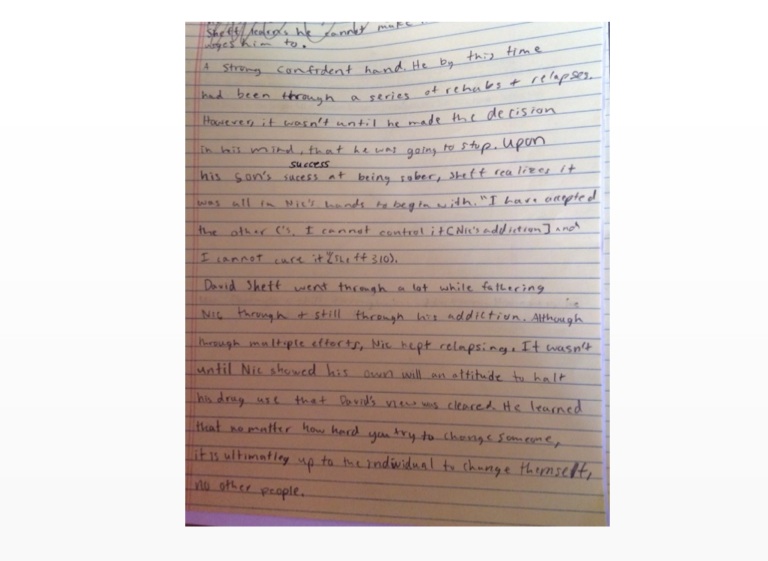 Sheff learns he cannot make
him to.
A strong confident hand. He by this time
had been through a series of rehabs + relapses.
However, it wasn't until he made the decision
in his mind, that he was going to stop. Upon
success
his son's sucess at being sober, Sheff realizes it
was all in Nic's hands to begin with. "I have accepted
the other C's. I cannot control it [Nic's addiction] and
I cannot cure it" (Sheff 310).
David Sheff went through a lot while fathering
Nic through + still through his addiction. Although
through multiple efforts, Nic kept relapsing. It wasn't
until Nic showed his own will an attitude to halt
his drug use that David's view was cleared. He learned
that no matter how hard you try to change someone,
it is ultimatley up to the individual to change themself,
no other people.